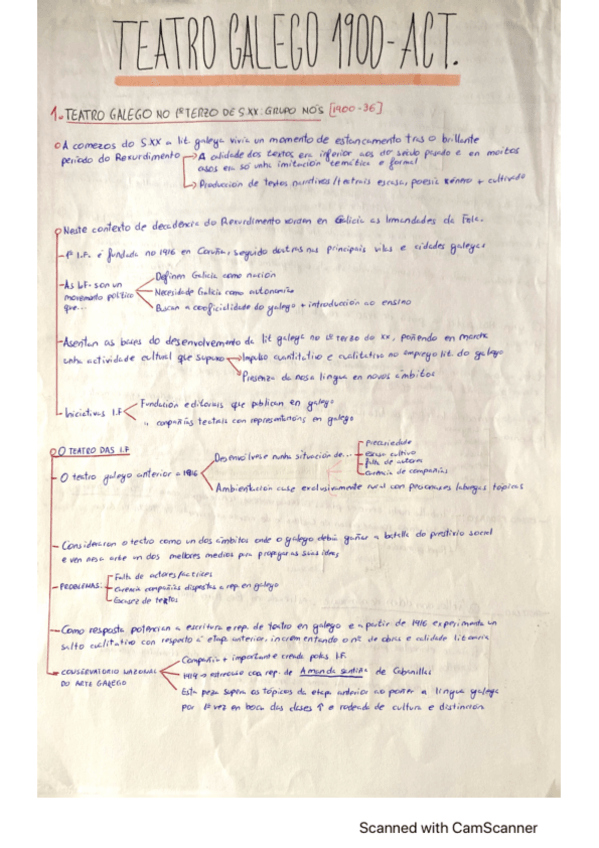 TEATRO GALEGO 1900-ACT.
1. TEATRO GALEGO NO 1º TERZO DE S.XX: GRUPO NÓS [1900-36]
A comezos do S.XX a lit galega vivía un momento de estancamento tras o brillante
período do Rexurdimento → A calidade dos textos era inferior aos do século pasado e en moitos
casos era só unha imitación temática e formal
→ Produción de textos narrativos/teatrais escasa, poesía xénero + cultivado
Neste contexto de decadencia do Rexurdimento xorden en Galicia as Irmandades da Fala.
- 1ª I.F. é fundada no 1916 en Coruña, seguido doutras nas principais vilas e cidades galegas
- As I.F. son un
movemento político
que...
Definen Galicia como nación
Necesidade Galicia como autonomía
Buscan a cooficialidade do galego + introducción ao ensino
- Asentan as bases do desenvolvemento da lit galega no 1º terzo do XX, poñendo en marcha
unha actividade cultural que supuxo → Impulso cuantitativo e cualitativo no emprego lit. do galego
→ Presenza da nosa lingua en novos ámbitos
- Iniciativas I.F
Fundación editoriais que publican en galego
" compañías teatrais con representacións en galego
O TEATRO DAS I.F
- O teatro galego anterior a 1916
Desenvólvese nunha situación de...
Precariedade
Escaso cultivo
Falta de autores
Carencia de compañías
Ambientación case exclusivamente rural con personaxes labregos tópicos
- Consideraron o teatro como un dos ámbitos onde o galego debía gañar a batalla do prestixio social
e ven nesa arte un dos mellores medios para propagar as súas ideas
- PROBLEMAS:
Falta de actores/actrices
Carencia compañías dispostas a rep. en galego
Escasez de textos
- Como resposta potencian a escritura e rep. de teatro en galego e a partir de 1916 experimenta un
salto cualitativo con respecto á etapa anterior, incrementando o nº de obras e calidade literaria
- CONSERVATORIO NAZONAL
DO ARTE GALEGO
Compañía + importante creada polas I.F.
1919 → estrease con rep. de A man da santiña de Cabanillas
Esta peza supera os tópicos da etapa anterior ao poñer a lingua galega
por 1ª vez en boca das clases ↑ e rodeada de cultura e distinción
Scanned with CamScanner